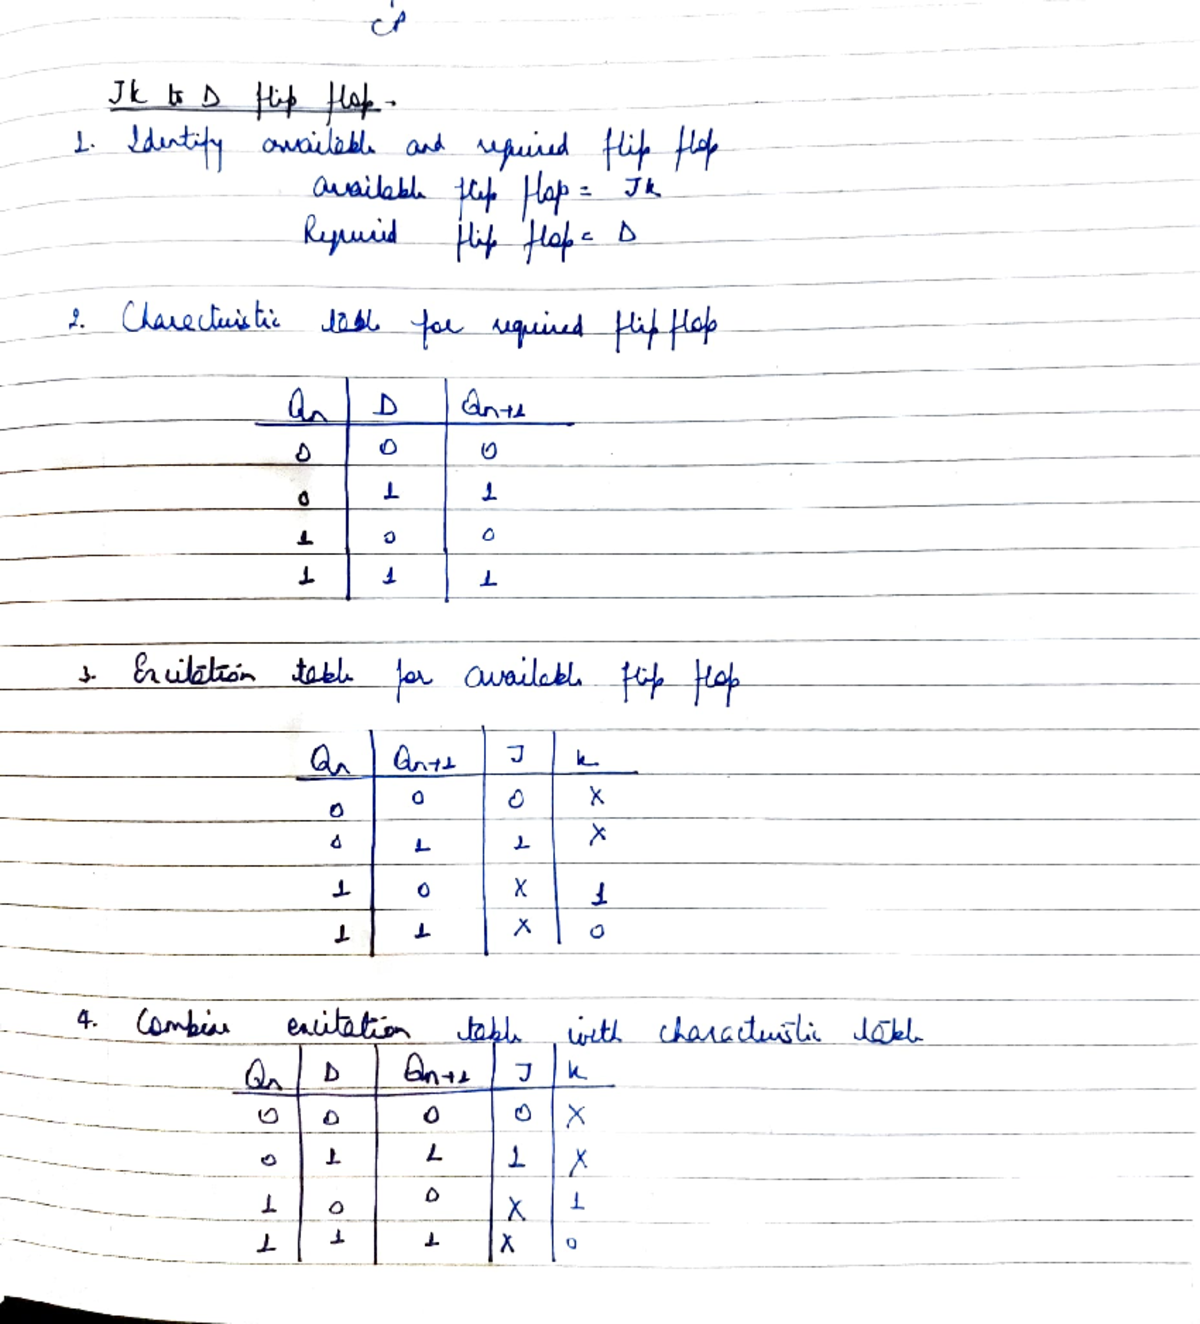 CP
Jk to D flip flop.
1. Identify available and required flip flop
available flip flop = Jk
Required flip flop = D
2. Charecteristic table for required flip flop
Qn D Qn+1
0 0 0
0 1 1
1 0 0
1 1 1
3. Excitation table for available flip flop
Qn Qn+1 J k
0 0 0 X
0 1 1 X
1 0 X 1
1 1 X 0
4. Combine excitation table with characteristic table
Qn D Qn+1 J k
0 0 0 0 X
0 1 1 1 X
1 0 0 X 1
1 1 1 X 0